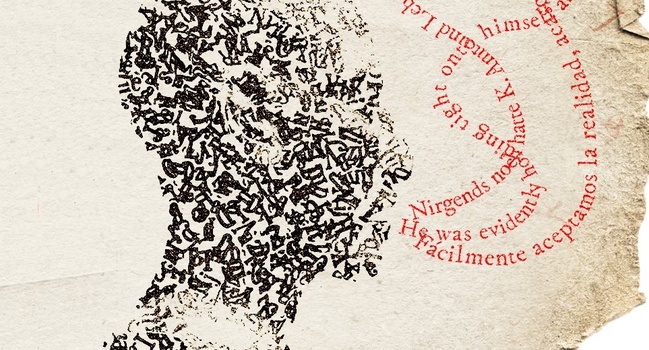 Nirgends noch hatte K. Amt und Leb
He was evidently holding tight on himse
Fácilmente aceptamos la realidad, aca